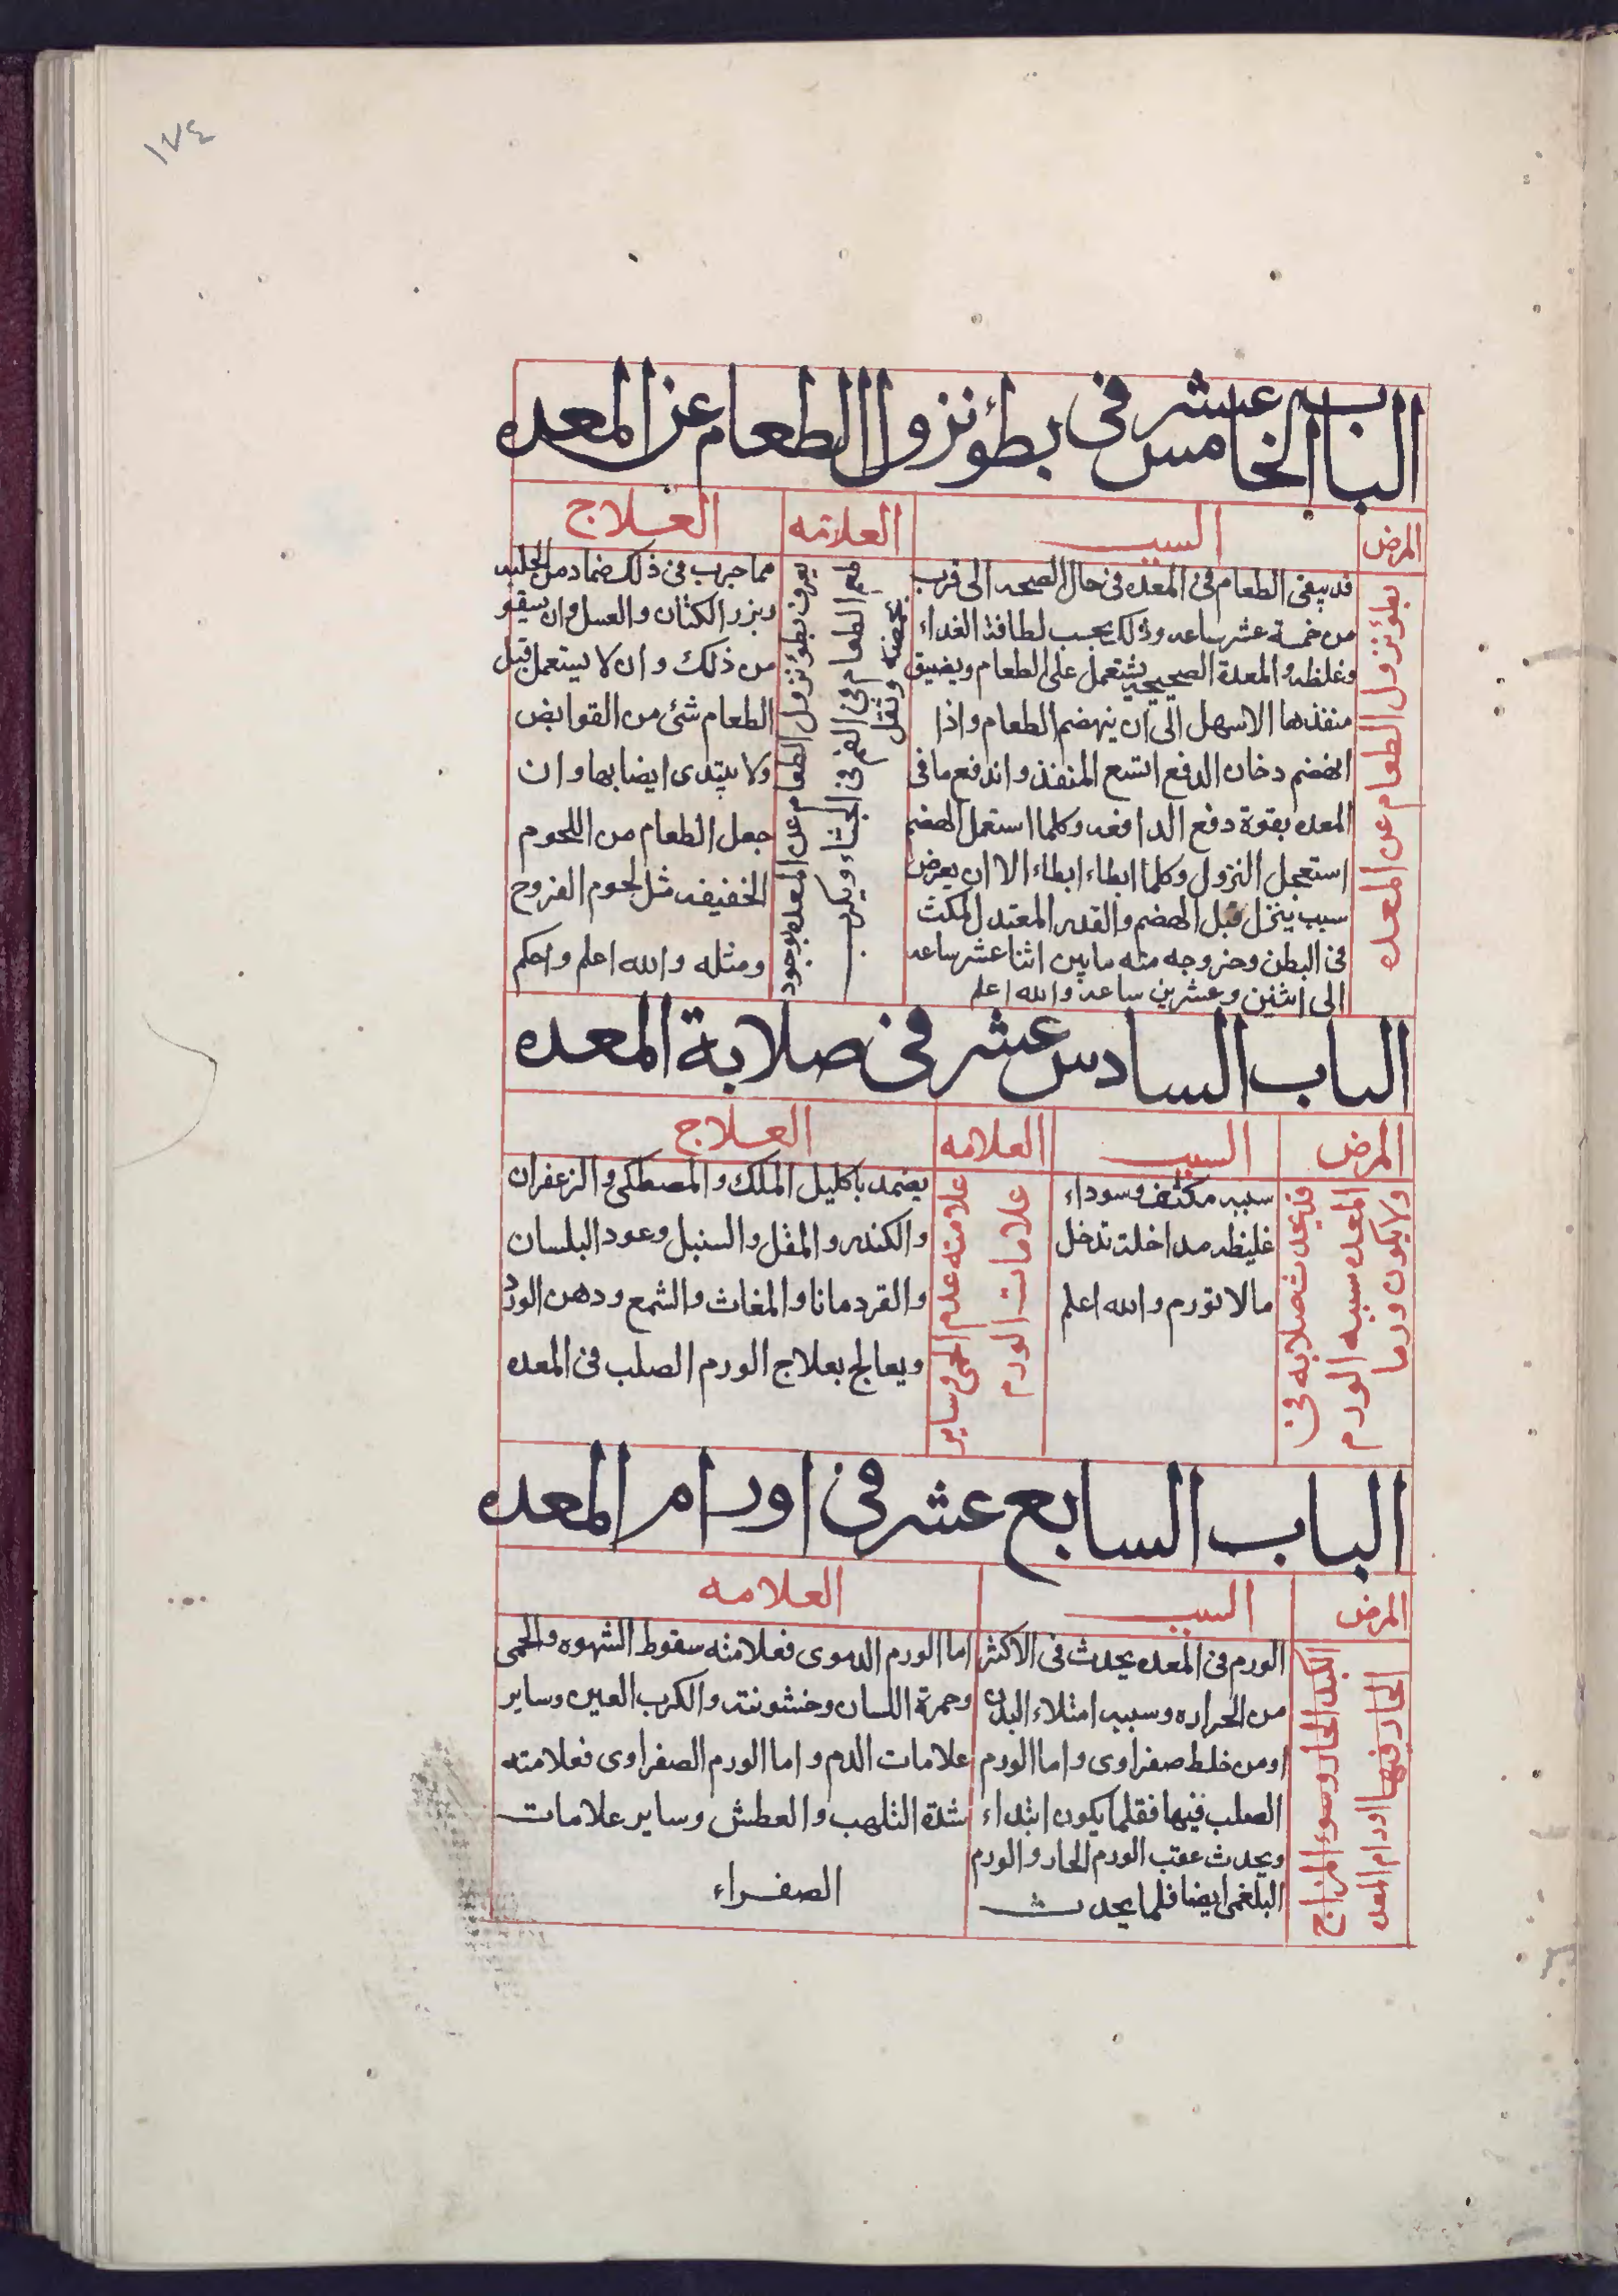 ١٧٤
الباب الخامس عشر فى بطؤ نزول الطعام عن المعده
المرض
السبب
العلامه
العلاج
بطؤ نزول الطعام عن المعده
قد يبقى الطعام فى المعده فى حال الصحه الى قرب
من خمسة عشر ساعه وذلك بحسب لطافة الغداء
وغلظه والمعدة الصحيحه تشتمل على الطعام ويضيق
منفذها الاسهل الى ان ينهضم الطعام واذا
انهضم دخان الدفع اتسع المنفذ واندفع ما فى
المعده بقوة دفع الدافعه وكلما استعمل الهضم
استعجل النزول وكلما ابطاء ابطاء الا ان يعرض
سبب ينزل قبل الهضم والقدر المعتدل لمكث
فى البطن وخروجه منه ما بين اثنا عشر ساعه
الى اثنين وعشرين ساعه والله اعلم
يعرف بطؤ نزول الطعام عن المعده بوجود
طعم الطعام فى الفم فى الجشاء ويكرب
بحمضه وثقل
مما جرب فى ذلك ضماد من الحلبه
وبزر الكتان والعسل وان يسقو
من ذلك وان لا يستعمل قبل
الطعام شئ من القوابض
ولا يبتدى ايضا بها وان
جعل الطعام من اللحوم
الخفيفه مثل لحوم الفروح
ومثله والله اعلم واحكم
الباب السادس عشر فى صلابة المعده
المرض
السبب
العلامه
العلاج
قد يحدث صلابه فى
المعده سببه الورم
ولا يكون ورما
سببه مكثف وسوداء
غليظه مداخلة تدخل
مالا تورم والله اعلم
علامته عدم الحمى وساير
علامات الورم
يضمد باكليل الملك والمصطكى والزعفران
والكندر والمقل والسنبل وعود البلسان
والقردمانا والمغاث والشمع ودهن الورد
ويعالج بعلاج الورم الصلب فى المعده
الباب السابع عشر فى اورام المعده
المرض
السبب
العلامه
الكبد الحار وسوء المزاج
الحار فيها اورام المعده
الورم فى المعده يحدث فى الاكثر
من الحراره وسببه امتلاء البدن
اومن خلط صفراوى واما الورم
الصلب فيها فقلما يكون ابتداء
ويحدث عقب الورم الحار والورم
البلغمى ايضا قلما يحدث
اما الورم الدموى فعلامته سقوط الشهوه والحمى
وحمرة اللسان وخشونته والكرب العين وساير
علامات الدم واما الورم الصفراوى فعلامته
شدة التلهب والعطش وساير علامات
الصفراء